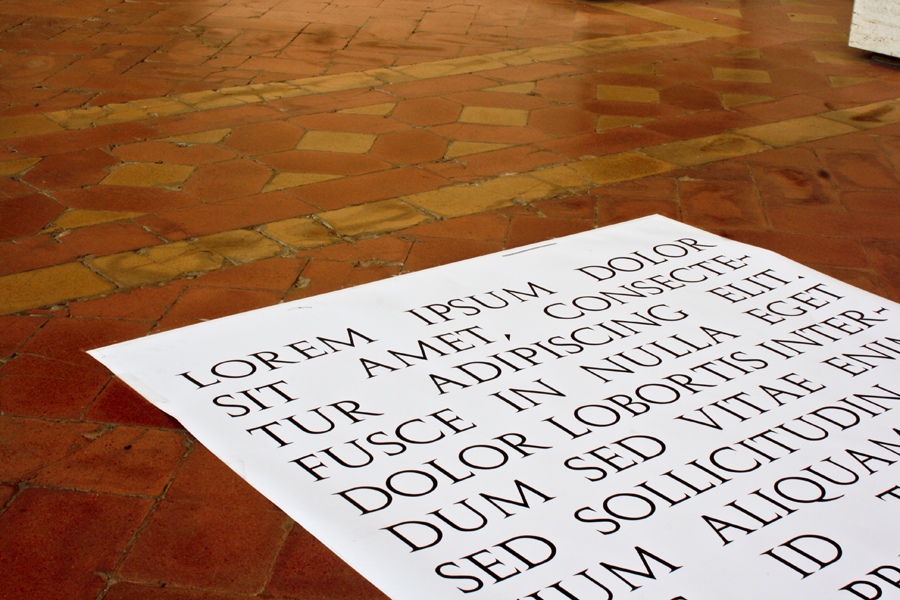 LOREM IPSUM DOLOR
SIT AMET, CONSECTE-
TUR ADIPISCING ELIT.
FUSCE IN NULLA EGET
DOLOR LOBORTIS INTER-
DUM SED VITAE ENIM
SED SOLLICITUDIN
ALIQUAM
ID